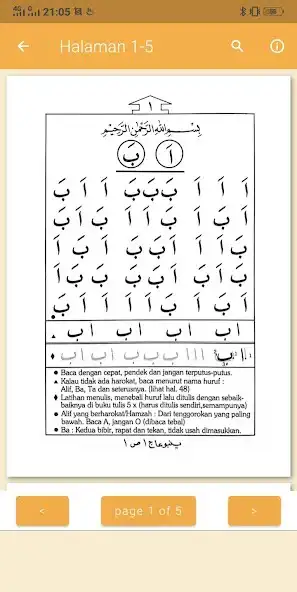 21:05
Halaman 1-5
١
بِسْمِ اللهِ الرَّحْمٰنِ الرَّحِيْمِ
اَ بَ
اَ اَ اَ بَ بَ بَ اَ اَ بَ
اَ بَ اَ بَ اَ اَ بَ اَ بَ
بَ اَ اَ اَ بَ بَ اَ بَ اَ
بَ اَ بَ اَ بَ بَ بَ بَ اَ
اَ بَ اَ بَ اَ اَ اَ اَ بَ
▲ ا ب ا ب ا ب ا ب
● Baca dengan cepat, pendek dan jangan terputus-putus.
▲ Kalau tidak ada harokat, baca menurut nama huruf :
Alif, Ba, Ta dan seterusnya. (lihat hal. 48)
♦ Latihan menulis, menebali huruf lalu ditulis dengan sebaik-
baiknya di buku tulis 5 x (harus ditulis sendiri,semampunya)
● Alif yang berharokat/Hamzah : Dari tenggorokan yang paling
bawah. Baca A, jangan O (dibaca tebal)
● Ba : Kedua bibir, rapat dan tekan, tidak usah dimasukkan.
<
page 1 of 5
>